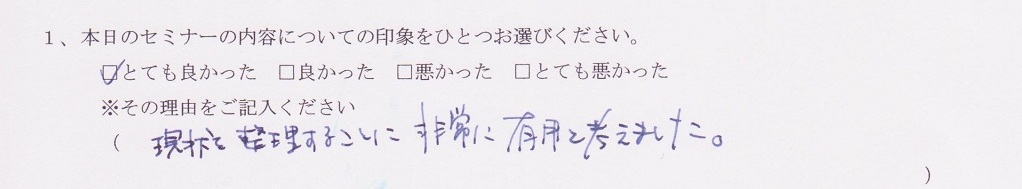 1、本日のセミナーの内容についての印象をひとつお選びください。
☑とても良かった □良かった □悪かった □とても悪かった
※その理由をご記入ください
( 現状を整理することに非常に有用と考えました。
)